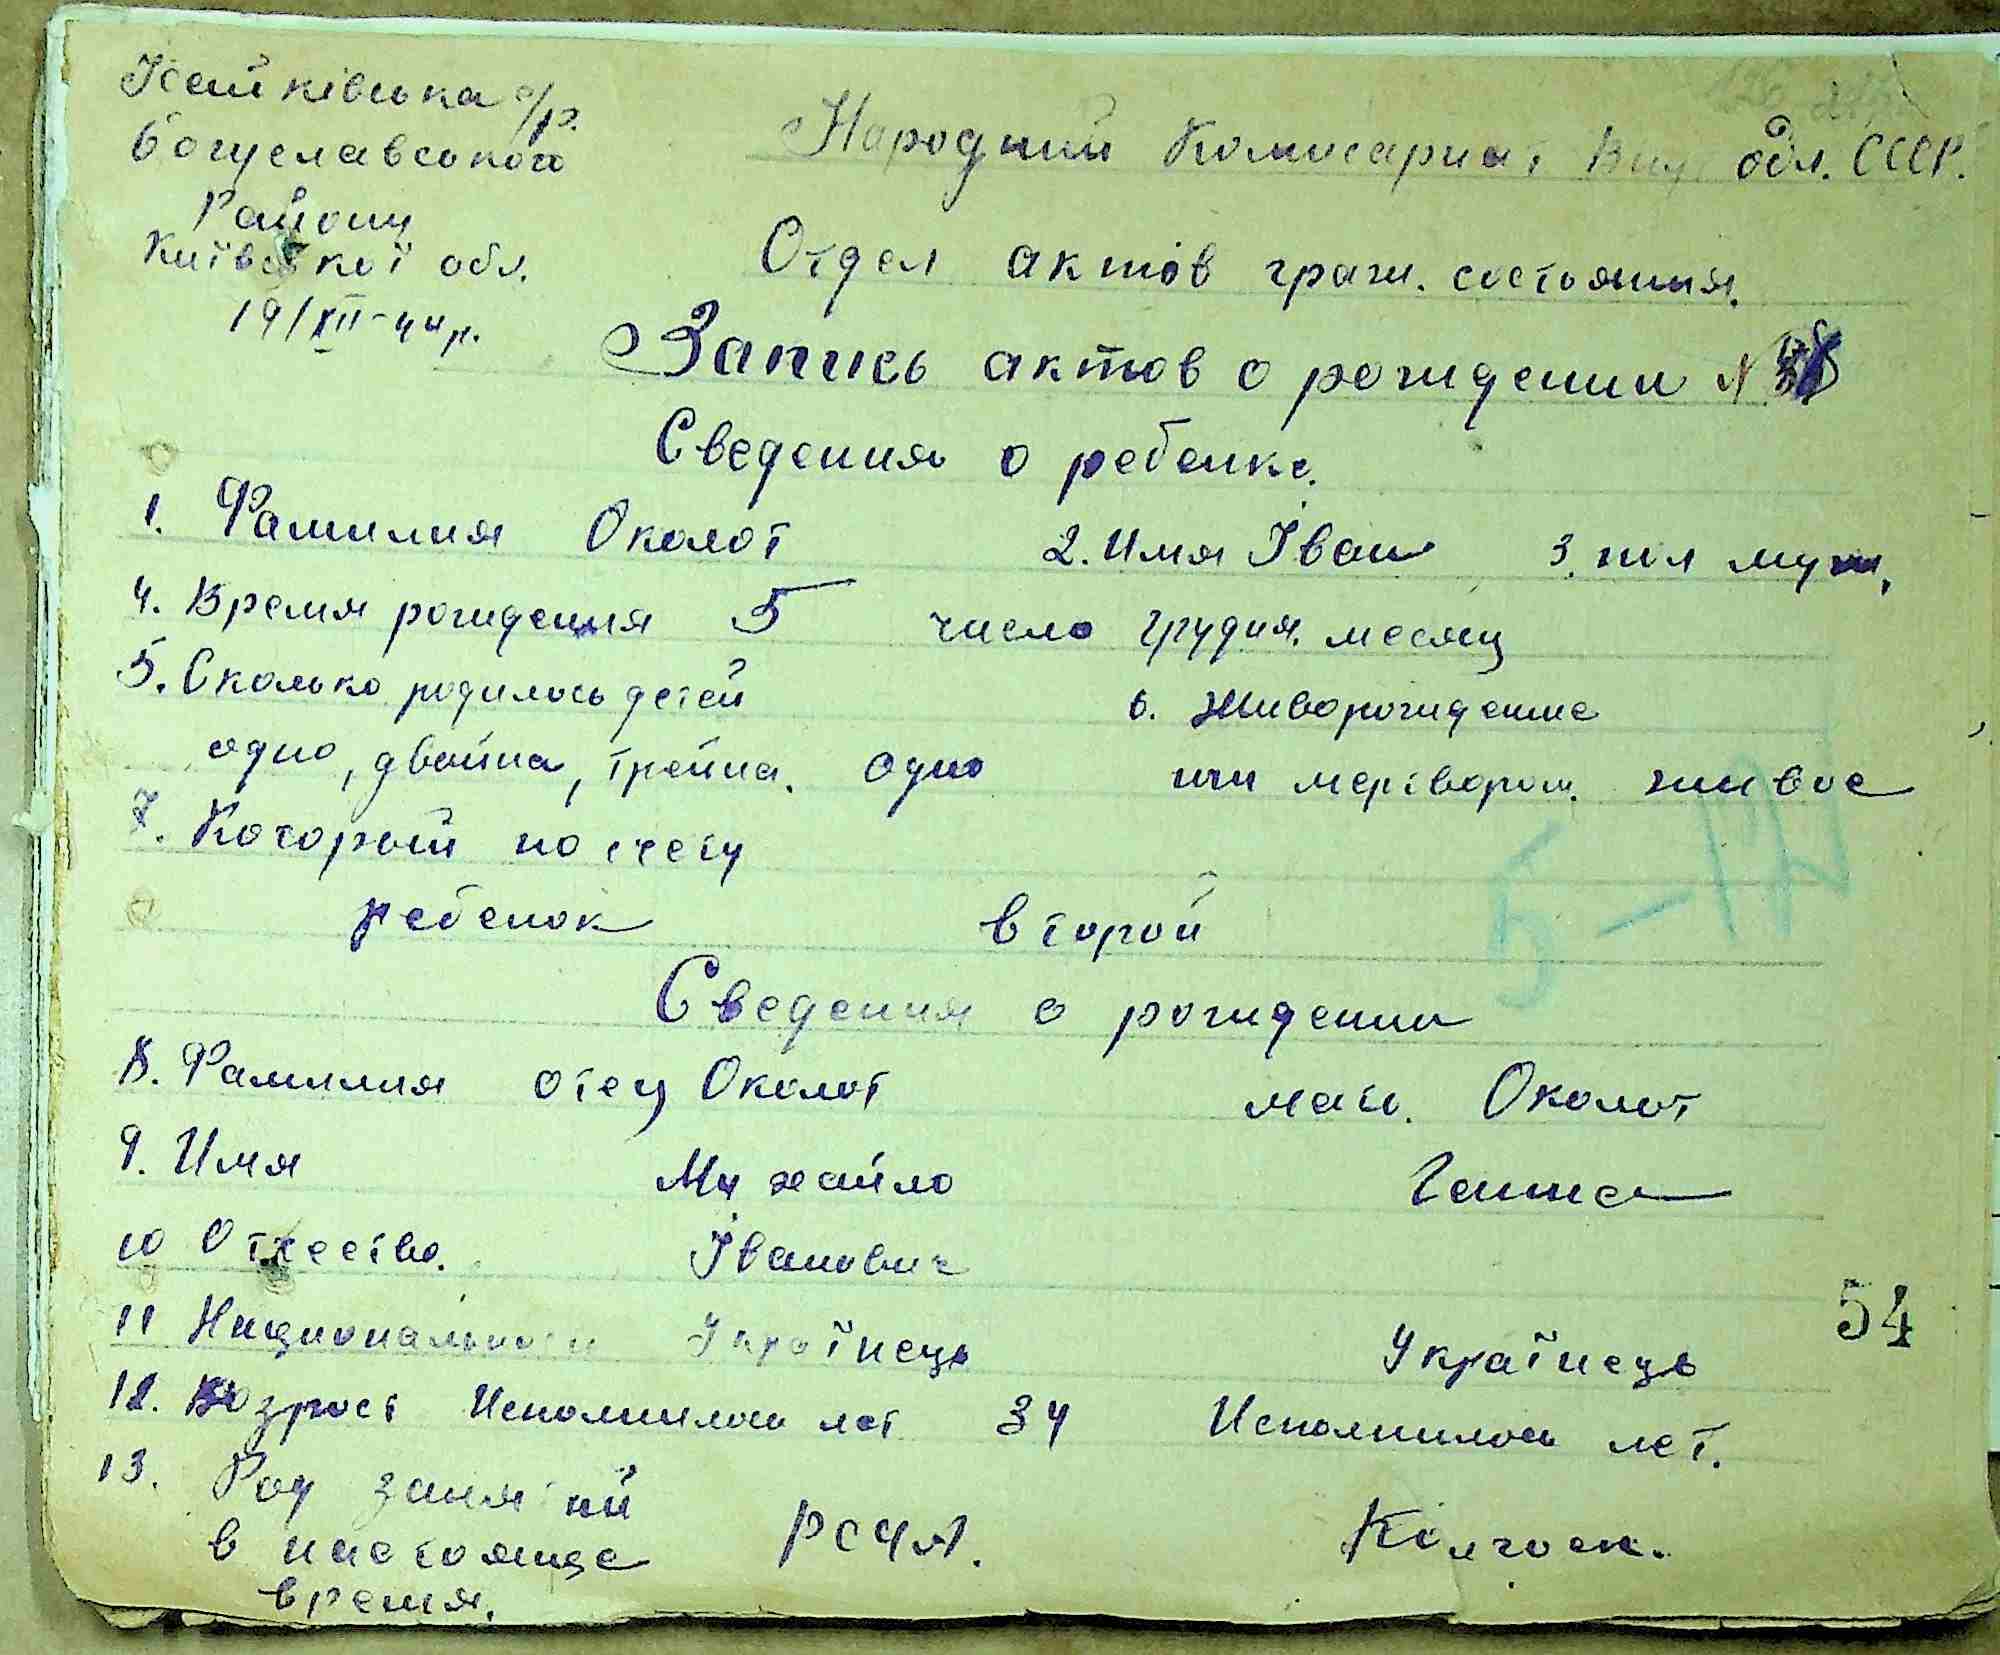 с/р.
Богуславського
Району
Київської обл.
19/XII-44р.
Народний Комисариат Вну. Дел. СССР.
Отдел актов граж. состояния.
Запись актов о рождении N
Сведения о ребенке.
1. Фамилия Околот 2. Имя Іван 3. пол муж.
4. Время рождения 5 число грудня. месяц
5. Сколько родилось детей 6. Живорождение
одно, двойна, тройна. одно или мертворож. живое
7. Который по счету
ребенок второй
5-12
Сведения о рождении
8. Фамилия отец Околот мать. Околот
9. Имя Михайло Ганна
10 Отчество. Іванович
54
11 Национальност Українець Українець
12. Возраст Исполнилось лет 34 Исполнилось лет.
13. Род занятий
в настояще РСЧА. Колгосп.
время.